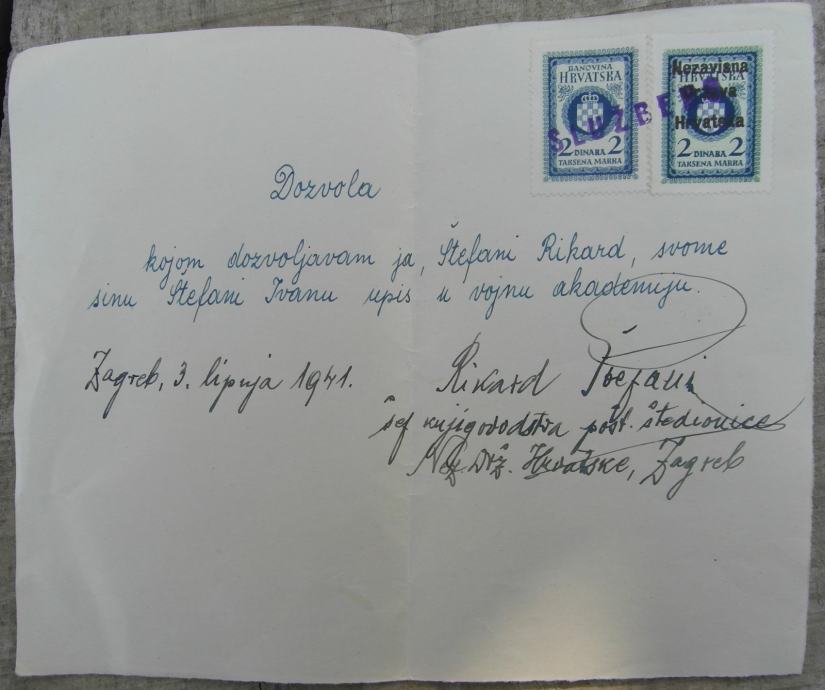 BANOVINA
HRVATSKA
2 DINARA 2
TAKSENA MARKA
HRVATSKA
Nezavisna
Država
Hrvatska
2 DINARA 2
TAKSENA MARKA
SLUŽBENO
Dozvola
kojom dozvoljavam ja, Štefani Rikard, svome
sinu Štefani Ivanu upis u vojnu akademiju.
Zagreb, 3. lipnja 1941.
Rikard Štefani
šef knjigovodstva pošt. štedionice
Nez. Drž. Hrvatske, Zagreb